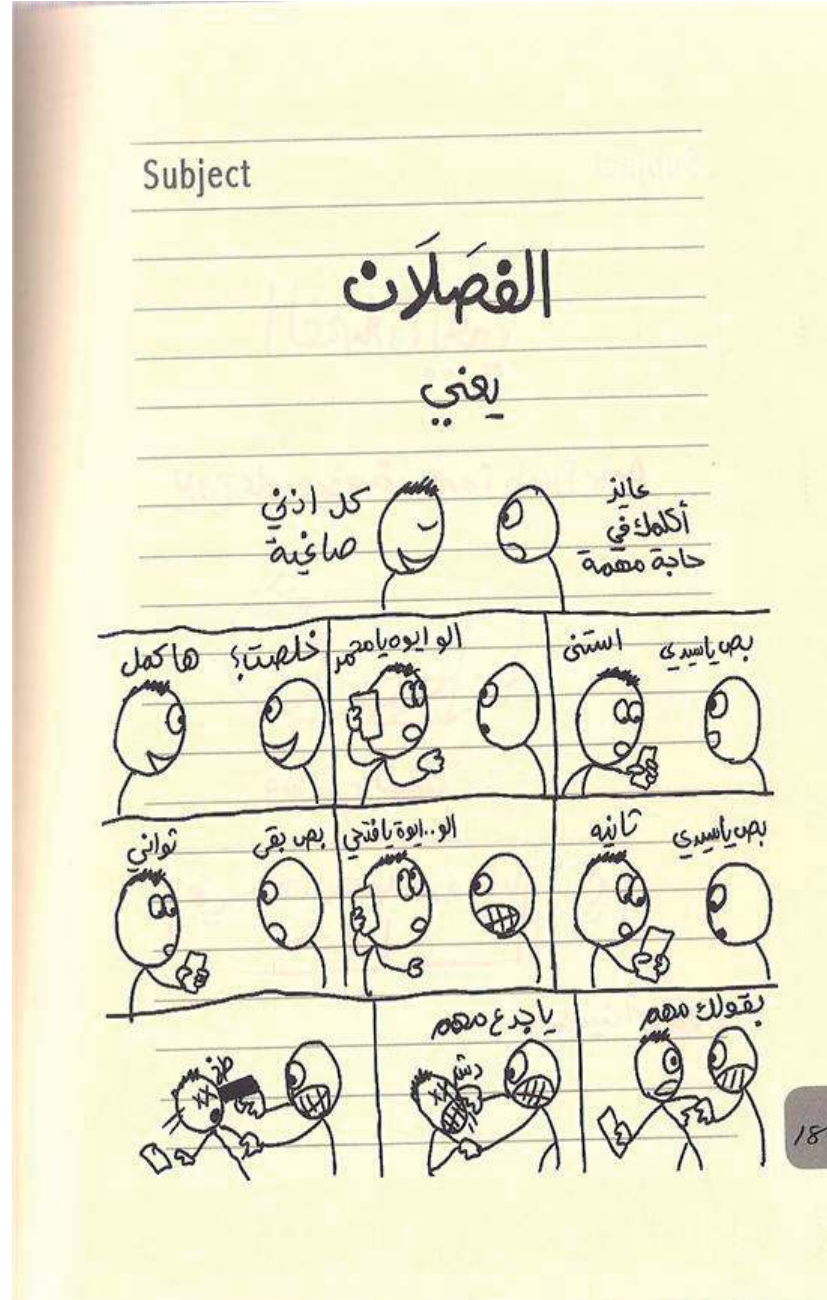 Subject
الفَصَلَان
يعني
عايز
أكلمك في
حاجة مهمة
كل اذني
صاغية
بص ياسيدي
استنى
الو ايوه يا محمد
خلصت؟
هاكمل
بص ياسيدي
ثانيه
الو..ايوة يا فتحي
بص بقى
ثواني
بقولك مهم
ياجدع مهم
دش
طخ
18